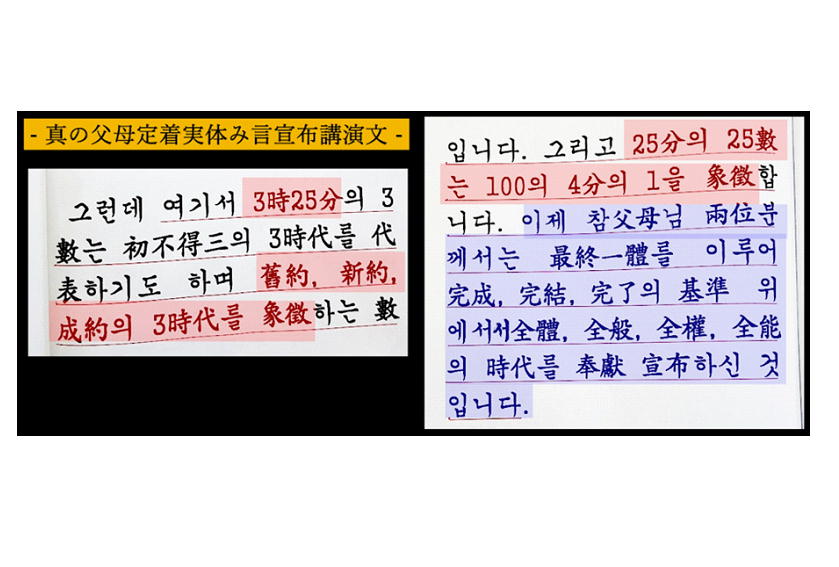 - 真の父母定着実体み言宣布講演文 -
그런데 여기서 3時25分의 3
數는 初不得三의 3時代를 代
表하기도 하며 舊約, 新約,
成約의 3時代를 象徵하는 數
입니다. 그리고 25分의 25數
는 100의 4分의 1을 象徵합
니다. 이제 참父母님 兩位분
께서는 最終一體를 이루어
完成, 完結, 完了의 基準 위
에서서全體, 全般, 全權, 全能
의 時代를 奉獻 宣布하신 것
입니다.